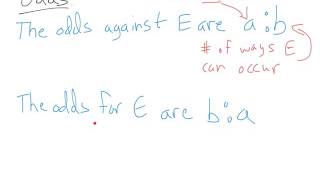 Odds
The odds against E are a:b
# of ways E
can occur
The odds for E are b:a